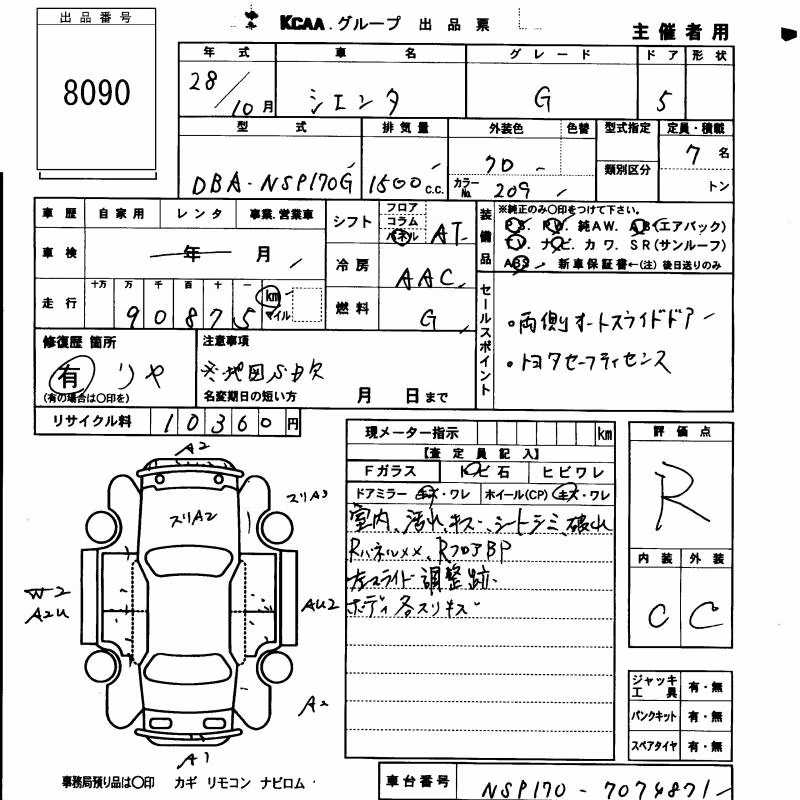 出品番号
8090
KCAA.グループ 出品票
主催者用
年式 車名 グレード ドア 形状
28/10月 シエンタ G 5
型式 排気量 外装色 色替 型式指定 定員・積載
類別区分
DBA-NSP170G 1500 C.C. カラーNo. 209 7名
トン
車歴 自家用 レンタ 事業.営業車
車検 年 月
走行 十万 万 千 百 十 一
90875 km マイル
シフト フロア コラム パネル AT
冷房 AAC
燃料 G
装備品
※純正のみ○印をつけて下さい。
P.S. P.W. 純AW. A.B(エアバック)
T.V. ナビ. カワ. SR(サンルーフ)
ABS 新車保証書←(注)後日送りのみ
セールスポイント
・両側オートスライドドアー
・トヨタセーフティセンス
修復歴 箇所
有 リヤ
(有の場合は○印を)
注意事項
※地図SD欠
名変期日の短い方 月 日まで
リサイクル料 10360円
現メーター指示 km
【査定員記入】
Fガラス トビ石 ヒビワレ
ドアミラー キズ・ワレ ホイール(CP) キズ・ワレ
室内、汚れ、キズ、シートシミ、破れ
Rパネルメメ、RフロアBP
左スライド調整跡.
ボディ各スリキズ
評価点
R
内装 外装
C C
ジャッキ工具 有・無
パンクキット 有・無
スペアタイヤ 有・無
A2
スリA2
スリA3
W2
A2U
AU2
A2
A1
事務局預り品は○印 カギ リモコン ナビロム
車台番号 NSP170-7074871